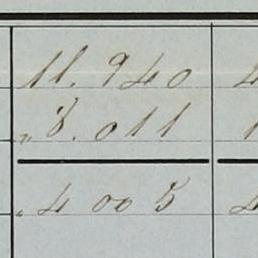 11. 940
„ 8. 011
„ 4 005